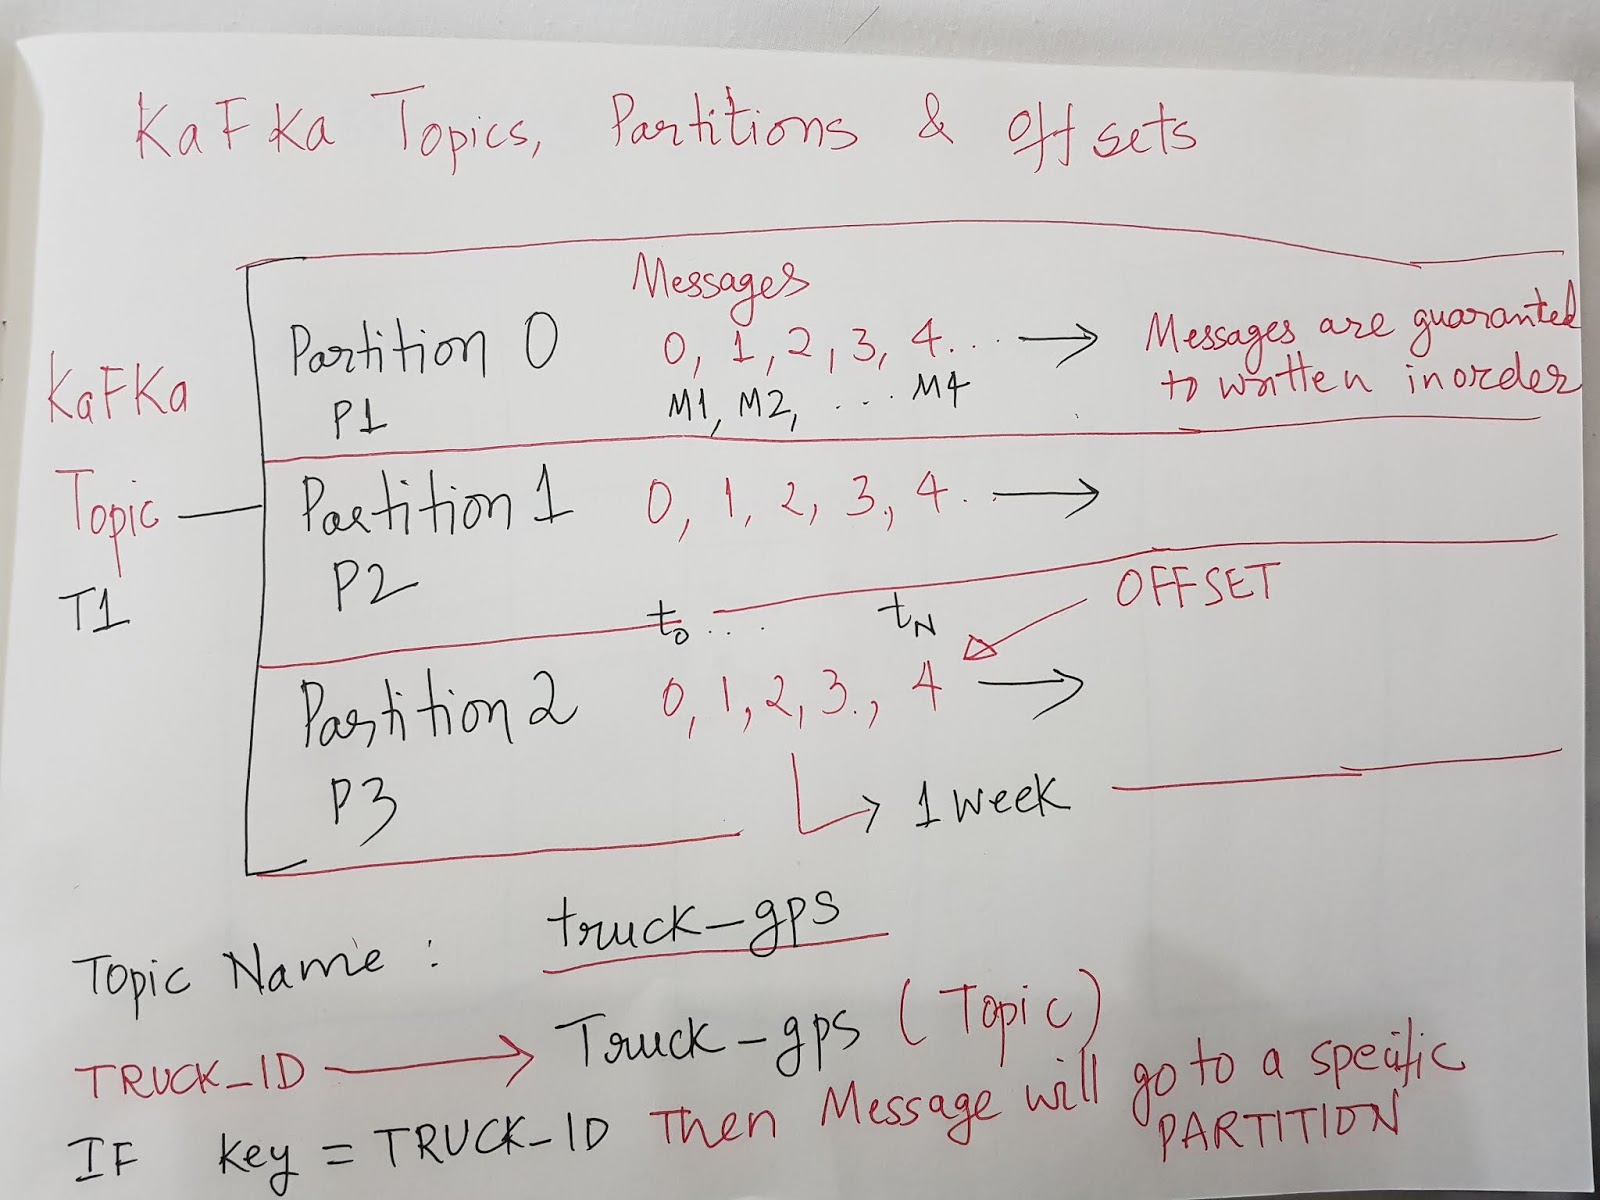 KaFKa Topics, Partitions & Offsets
Messages
Partition 0 0, 1, 2, 3, 4... → Messages are guaranted
to written inorder
P1 M1, M2, ... M4
KaFKa
Topic
T1
Partition 1 0, 1, 2, 3, 4.. →
P2
t0 ... tN OFFSET
Partition 2 0, 1, 2, 3., 4 →
P3 → 1 week
Topic Name : truck-gps
TRUCK_ID → Truck-gps (Topic)
IF key = TRUCK_ID Then Message will go to a specific
PARTITION